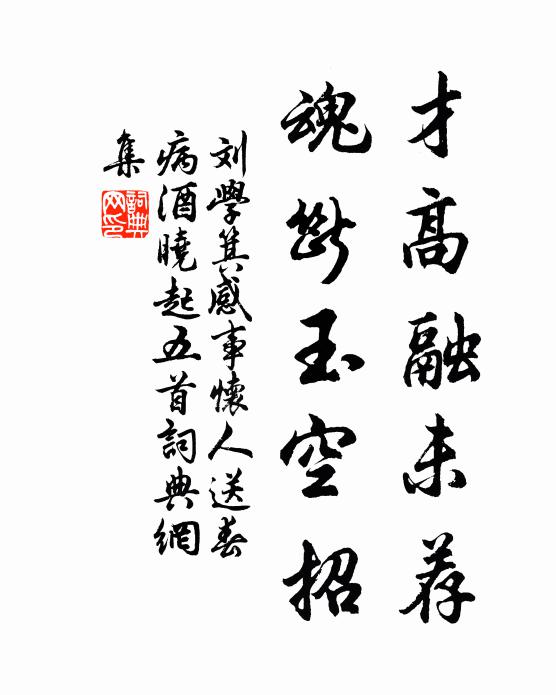 才高融未荐
魂断玉空招
刘學箕感事懷人送春
病酒曉起五首詞典網
集
詞典
网印